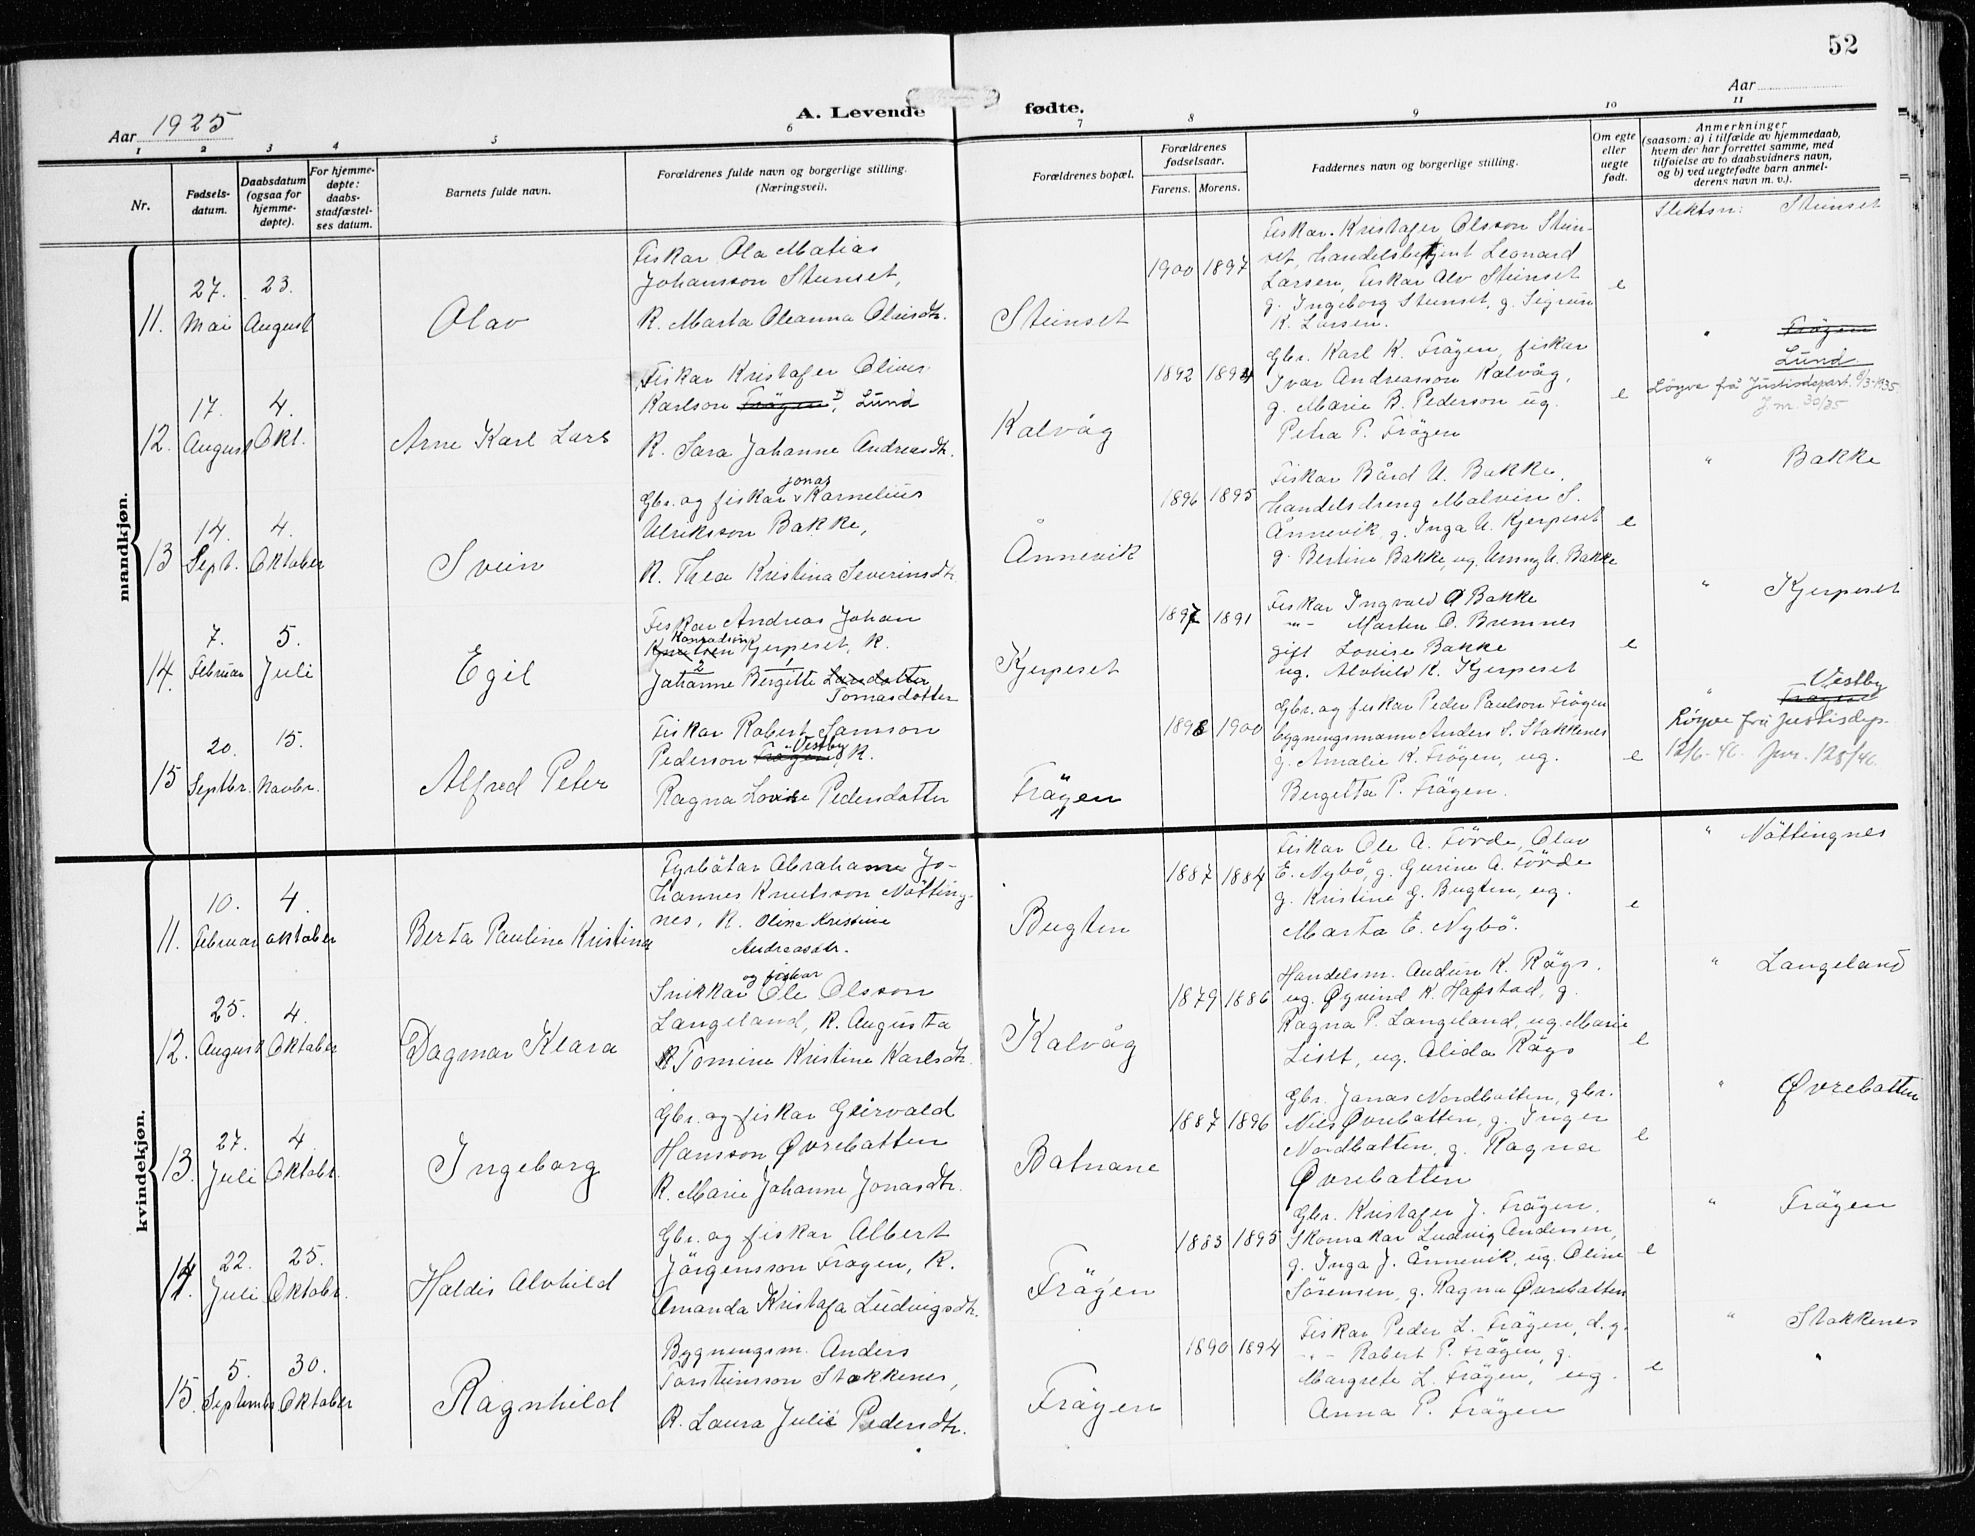 52
Aar 1925
A. Levende fødte.
Aar
1 2 3 4 5 6 7 8 9 10 11
Nr.
Fødsels-
datum.
Daabsdatum
(ogsaa for
hjemme-
døpte).
For hjemme-
døpte:
daabs-
stadfæstel-
ses datum.
Barnets fulde navn.
Forældrenes fulde navn og borgerlige stilling.
(Næringsvei).
Forældrenes bopæl.
Forældrenes
fødselsaar.
Farens. Morens.
Faddernes navn og borgerlige stilling.
Om egte
eller
uegte
født.
Anmerkninger
(saasom: a) i tilfælde av hjemmedaab,
hvem der har forrettet samme, med
tilføielse av to daabsvidners navn,
og b) ved uegtefødte barn anmel-
derens navn m. v.).
mandkjøn.
11.
27.
Mai
23.
August
Olav
Fiskar Ola Matias
Johansson Steinset,
K. Marta Oleanna Olaisdtr.
Steinset
1900 1897
Fiskar Kristafer Olsson Stein-
set, handelsbetjent Leonard
Larsen, Fiskar Alv Steinset
g. Ingeborg Steinset, g. Sigrun
K. Larsen.
e
Slektsn: Steinset
12.
17.
August
4.
Okt.
Arne Karl Lars
Fiskar Kristafer Oliver
Karlson Frøyen, Lund
K. Sara Johanne Andreasdtr.
Kalvåg
1892 1894
Gbr. Karl K. Frøyen, fiskar
Ivar Andreasson Kalvåg,
g. Marie B. Pederson ug.
Petra P. Frøyen
e
Frøyen
Lund
Løyve frå Justisdepart. 8/3-1935.
J.nr. 30/35
13
14.
Sept.
4.
Oktober
Svein
Gbr. og fiskar Jonas Kornelius
Ulriksson Bakke,
K. Thea Kristina Severinsdtr.
Ånnevik
1896 1895
Fiskar Bård U. Bakke,
Handelsdreng Malvin S.
Ånnevik, g. Inga U. Kjerpeset
g. Bertine Bakke, ug. Unny U. Bakke
e
" Bakke
14.
7.
Februar
5.
Juli
Egil
Fiskar Andreas Johan
Konradson
Knutsen Kjerpeset, K.
2 1
Johanne Bergitte Larsdotter
Tomasdotter
Kjerpeset
1897 1891
Fiskar Ingvald O Bakke
-"- Marten O. Bremnes
gift Lovise Bakke
ug. Alvhild K. Kjerpeset
e
" Kjerpeset
15
20.
Septbr.
15.
Novbr.
Alfred Peter
Fiskar Robert Samson
Pederson Frøyen Vestby K.
Ragna Lovise Pedersdotter
Frøyen
1898 1900
Gbr. og fiskar Peder Paulson Frøyen
bygningsmann Anders S. Stakkenes
g. Amalie K. Frøyen, ug.
Bergetta P. Frøyen.
e
Vestby
" Frøyen
Løyve frå Justisdep.
12/6-46. Jnr. 128/46.
kvindekjøn.
11.
10.
Februar
4.
oktober
Berta Pauline Kristina
Fyrbøtar Abraham Jo-
hannes Knutsson Nøtting-
nes, K. Oline Kristine
Andreasdtr.
Bugten
1887 1884
Fiskar Ole A. Førde, Olav
E. Nybö, g. Gurine A. Førde
g. Kristine G. Bugten, ug.
Marta E. Nybö.
e
" Nøttingnes
12.
25.
August
4.
Oktober
Dagmar Klara
og fiskar
Snikkar Ole Olsson
Langeland, K. Augusta
Tomine Kristine Karlsdtr.
Kalvåg
1879 1886
Handelsm. Audun K. Røys.
ug. Øyvind K. Hafstad, g.
Ragna P. Langeland, ug. Marie
Listt, ug. Alida Røys
e
" Langeland
13.
27.
Juli
4
Oktobr.
Ingeborg
Gbr. og fiskar Geirvald
Hansson Øvrebotten
K. Marie Johanne Jonasdtr.
Botnane
1887 1896
Gbr. Jonas Nordbotten, gbr.
Nils Øvrebotten, g. Inger
Nordbotten, g. Ragna
Øvrebotten
e
" Øvrebotten
14.
22.
Juli
25.
Oktobr.
Haldis Alvhild
Gbr. og fiskar Albert
Jørgensson Frøyen, K.
Amanda Kristofa Ludvigsdtr.
Frøyen
1883 1895
Gbr. Kristafer J. Frøyen.
Skomakar Ludvig Andersen,
g. Inga J. Ånnevik, ug. Oline
Sørensen, g. Ragna Øvrebotten
e
" Frøyen
15.
5.
Septembr
30.
Oktober
Ragnhild
Bygningsm. Anders
Torsteinsson Stakkenes,
K. Laura Julie Pedersdtr.
Frøyen
1890 1894
Fiskar Peder L. Frøyen, d.g.
-"- Robert P. Frøyen, g.
Margrete L. Frøyen, ug.
Anna P. Frøyen
e
" Stakkenes